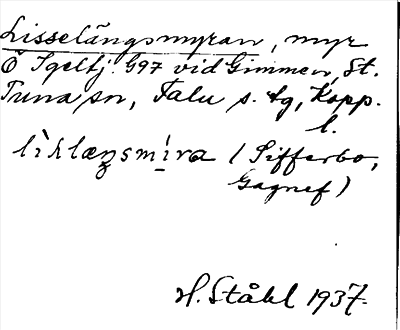 Lisselängsmyran, myr
Ö Igeltj. G97 vid Gimmen, St.
Tuna sn, Falu s. tg, Kopp.
l.
lìklæŋsmí̱ra (Sifferbo,
Gagnef)
H. Ståhl 1937.